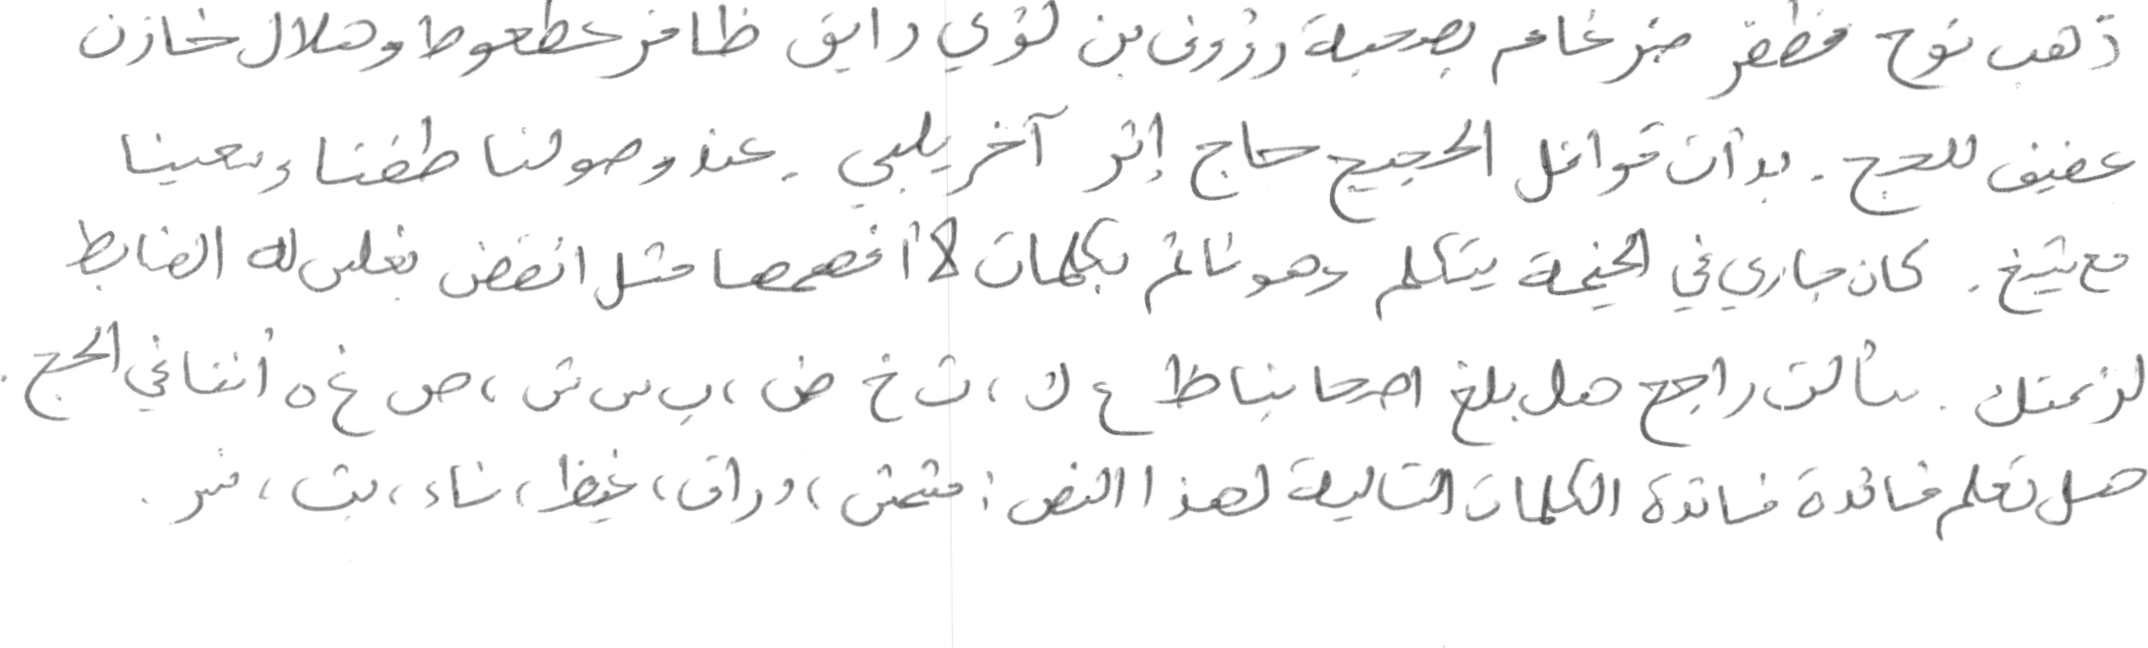 ذهب نوح مظفر ضرغام بصحبة رؤوف بن لؤي رايق ظافر عطعوط وهلال خازن
عفيف للحج. بدأت قوافل الحجيج حاج إثر آخر يلبي. عند وصولنا طفنا وسعينا
مع شيخ. كان جاري في الخيمة يتكلم وهو نائم بكلمات لا أفهمها مثل انقض بغلس له الضابط
لزعمتك. سألت راجح هل بلغ اصحابنا ظ ع ك ، ث خ ض ، ب س ش ، ص غ ه أننا في الحج.
هل تعلم فائدة فائدة الكلمات التالية لهذا النص : مشمش ، دراق ، غيظ ، شاء ، بث ، نسر .